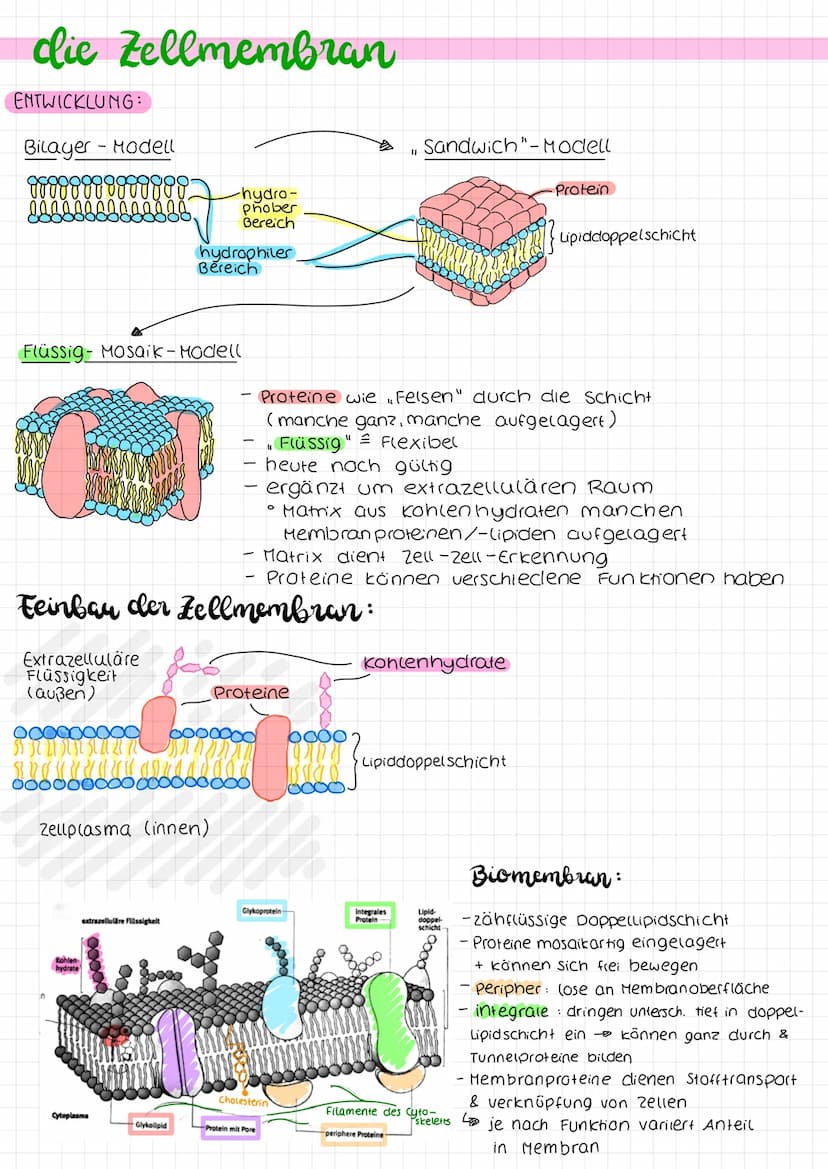 die Zellmembran
ENTWICKLUNG:
Bilayer - Modell
„Sandwich"-Modell
hydro-
phober
Bereich
hydrophiler
Bereich
Protein
Lipiddoppelschicht
Flüssig- Mosaik-Modell
- Proteine wie „Felsen" durch die Schicht
(manche ganz, manche aufgelagert)
- „Flüssig" ≙ Flexibel
- heute noch gültig
- ergänzt um extrazellulären Raum
° Matrix aus Kohlenhydraten manchen
Membranproteinen/-lipiden aufgelagert
- Matrix dient Zell-Zell-Erkennung
- Proteine können verschiedene Funktionen haben
Feinbau der Zellmembran:
Extrazelluläre
Flüssigkeit
(außen)
Proteine
Kohlenhydrate
Lipiddoppelschicht
Zellplasma (innen)
Biomembran:
- zähflüssige Doppellipidschicht
- Proteine mosaikartig eingelagert
+ können sich frei bewegen
- Peripher: lose an Membranoberfläche
- integrale : dringen untersch. tief in doppel-
lipidschicht ein → können ganz durch &
Tunnelproteine bilden
- Membranproteine dienen Stofftransport
& verknüpfung von Zellen
↳ je nach Funktion variiert Anteil
in Membran
extrazelluläre Flüssigkeit
Glykoprotein
Integrales
Protein
Lipid-
doppel-
schicht
Kohlen-
hydrate
Cholesterin
Filamente des Cyto-
skeletts
Cytoplasma
Glykolipid
Protein mit Pore
periphere Proteine